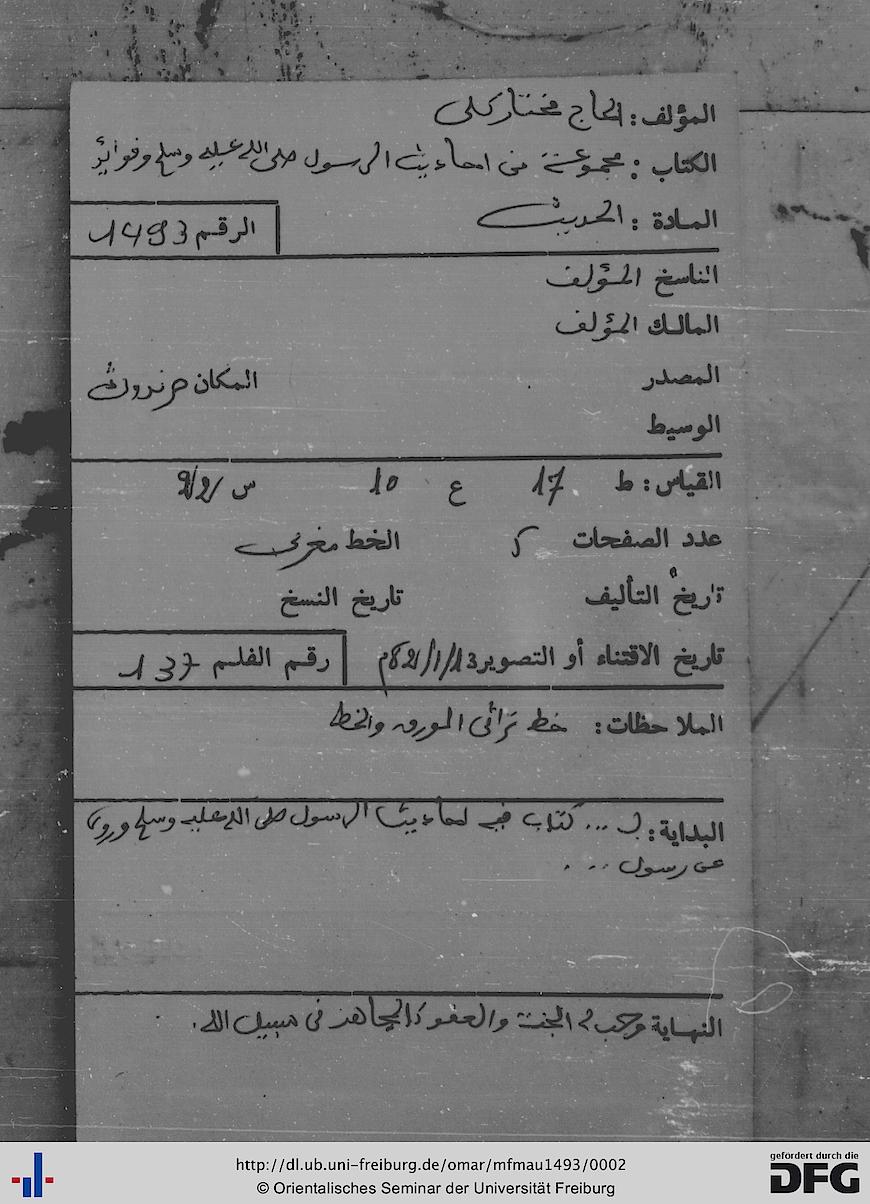 المؤلف: الحاج مختار كلى
الكتاب: مجموعة من احاديث الرسول صلى الله عليه وسلم وفوائد
المادة: الحديث
الرقم 1493
الناسخ المؤلف
المالك المؤلف
المصدر
المكان
الوسيط
القياس: ط 17 ع 10 س
عدد الصفحات 5 الخط مغربى
تاريخ التأليف تاريخ النسخ
تاريخ الاقتناء أو التصوير
رقم الفلم 137
الملاحظات: خط والخط
البداية: ... كتاب فيه احاديث الرسول صلى الله عليه وسلم
عن رسول ...
النهاية الجنة والعفو المجاهد فى سبيل الله.
http://dl.ub.uni-freiburg.de/omar/mfmau1493/0002
© Orientalisches Seminar der Universität Freiburg
gefördert durch die
DFG